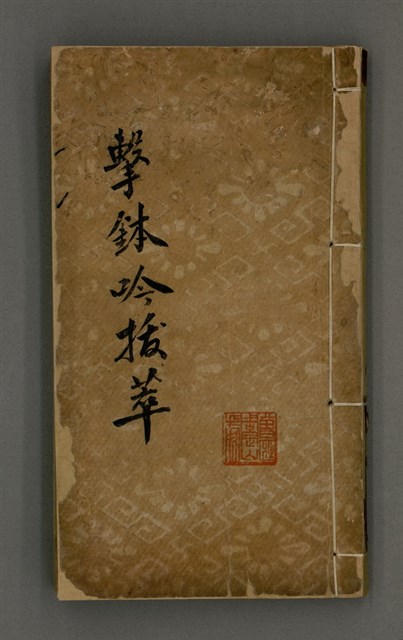 擊鉢吟拔萃